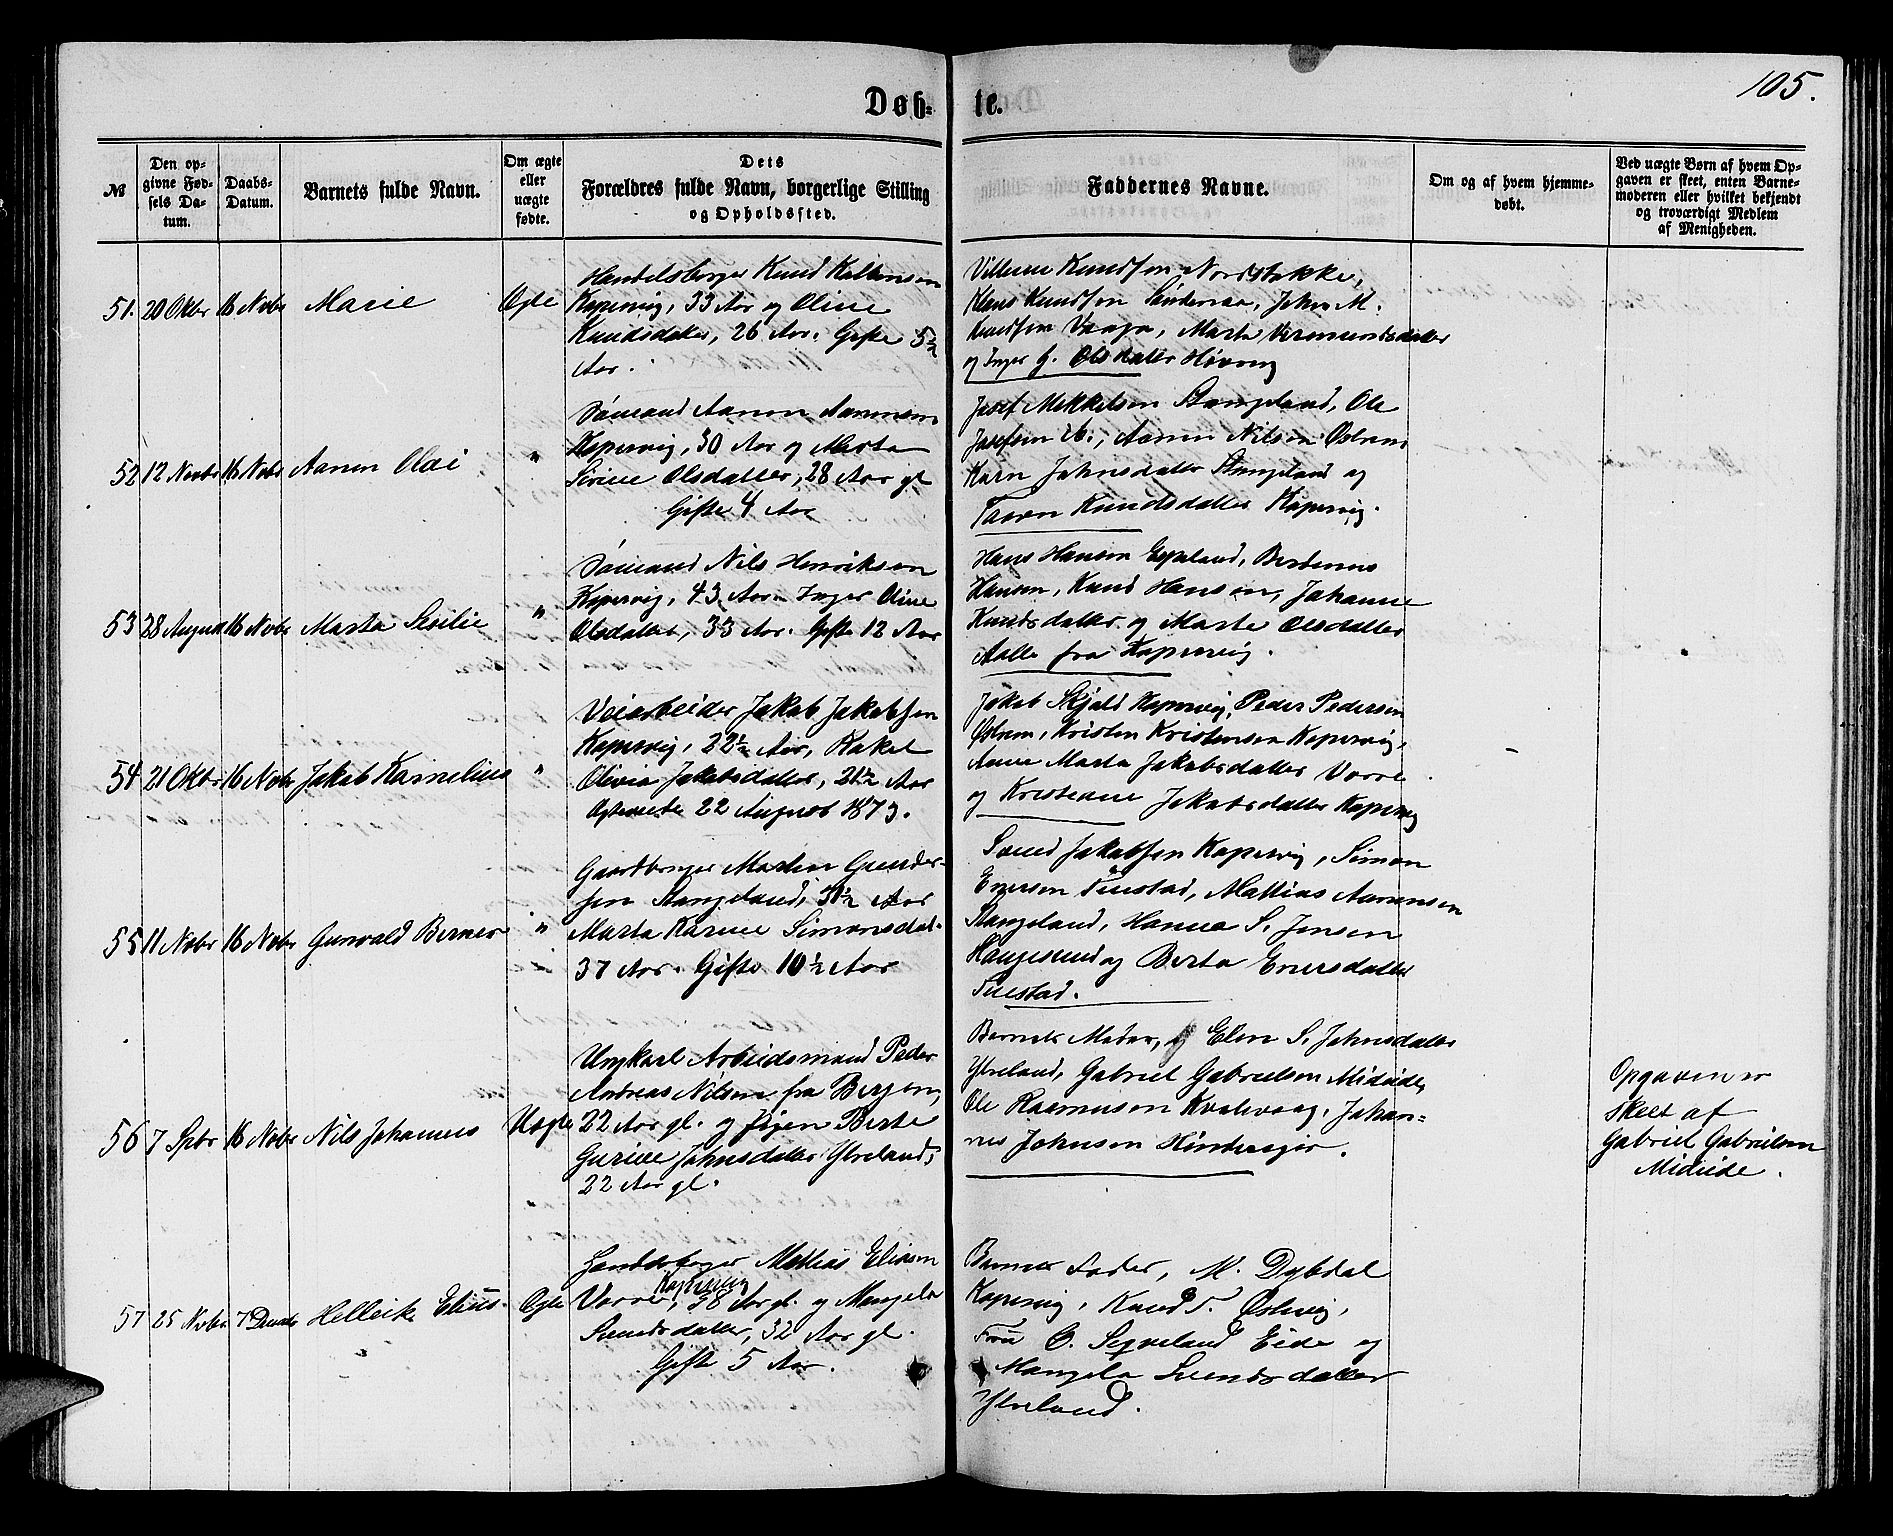 105.
Døb-
te.
№
Den op-
givne Fød-
sels Da-
tum.
Daabs-
Datum.
Barnets fulde Navn.
Om ægte
eller
uægte
fødte.
Dets
Forældres fulde Navn, borgerlige Stilling
og Opholdssted.
Faddernes Navne.
Om og af hvem hjemme-
døbt.
Ved uægte Børn af hvem Op-
gaven er skeet, enten Barne-
moderen eller hvilket bekjendt
og troværdigt Medlem
af Menigheden.
51. 20 Oktbr 16 Novbr Marie Ægte
Handelsborger Knud
Kopervig, 33 Aar og Oline
Knudsdatter, 26 Aar. Gifte 5½
Aar.
Villum Knudsen Nordstokke,
Hans Knudsen Sønderaa, John M.
Knudsen Vaaga, Marta Vermundsdatter
og Inger G. Olsdatter Høvring
52 12 Novbr 16 Novbr Aanon Olai "
Sømand Aanon Aanonsen
Kopervig, 30 Aar og Marta
Serine Olsdatter, 28 Aar gl
Gifte 4 Aar
Josef Mikkelsen Stangeland, Ole
Josefsen ib., Aanen Nilsen Østrem
Karn Johnsdatter Stangeland og
Knudsdatter Kopervig.
53 28 August 16 Novbr Marta Sesilie "
Sømand Nils Henriksen
Kopervig, 43 Aar Inger Oline
Olsdatter, 33 Aar. Gifte 12 Aar
Hans Hansen Eypeland, Berdenus
Hansen, Knud Hansen, Johanne
Knudsdatter og Marte Olsdatter
Aalle fra Kopervig.
54 21 Oktbr 16 Novbr Jakob Kornelius "
Veiarbeider Jakob Jakobsen
Kopervig, 22½ Aar, Rakel
Olivia Jakobsdatter, 21½ Aar
Egteviede 22 August 1873.
Jakob Skjold Kopervig, Peder Pedersen
Østrem, Kristen Kristensen Kopervig,
Anne Marta Jakobsdatter Vorre
og Kristiane Jakobsdatter Kopervig
55 11 Novbr 16 Novbr Gunvald Berner "
Gaardbruger Martin Gunder-
sen Stangeland, 31½ Aar
Marta Karine Simonsdat.
37 Aar. Gifte 10½ Aar
Svend Jakobsen Kopervig, Simon
Enersen Tuestad, Mattias Aanensen
Stangeland, Hanna S. Jensen
Haugesund og Berta Enersdatter
Tuestad.
56 7 Sptbr 16 Novbr Nils Johannes Uægte
Ungkarl Arbeidsmand Peder
Andreas Nilsen fra Bergen,
22 Aar gl. og Pigen Berte
Gurine Johnsdatter Ytreland,
22 Aar gl.
Barnets Moder, og Elen S. Johnsdatter
Ytreland, Gabriel Gabrielsen Midtiide,
Ole Rasmussen Kvalevaag, Johan-
nes Johnsen Hindersjør.
Opgaven er
skeet af
Gabriel Gabrielsen
Midtiide.
57 25 Novbr 7 Decembr Helleik Elius. Ægte
Mattias Eliasen
Kopervig
Vorre, 38 Aar gl. og Mangela
Svendsdatter, 32 Aar gl.
Gifte 5 Aar.
Barnets Fader, M. Dybdal
Kopervig, Knud T. Østevig,
Fru C. Seqveland Eide og
Mangela Svendsdatter
Ytreland.